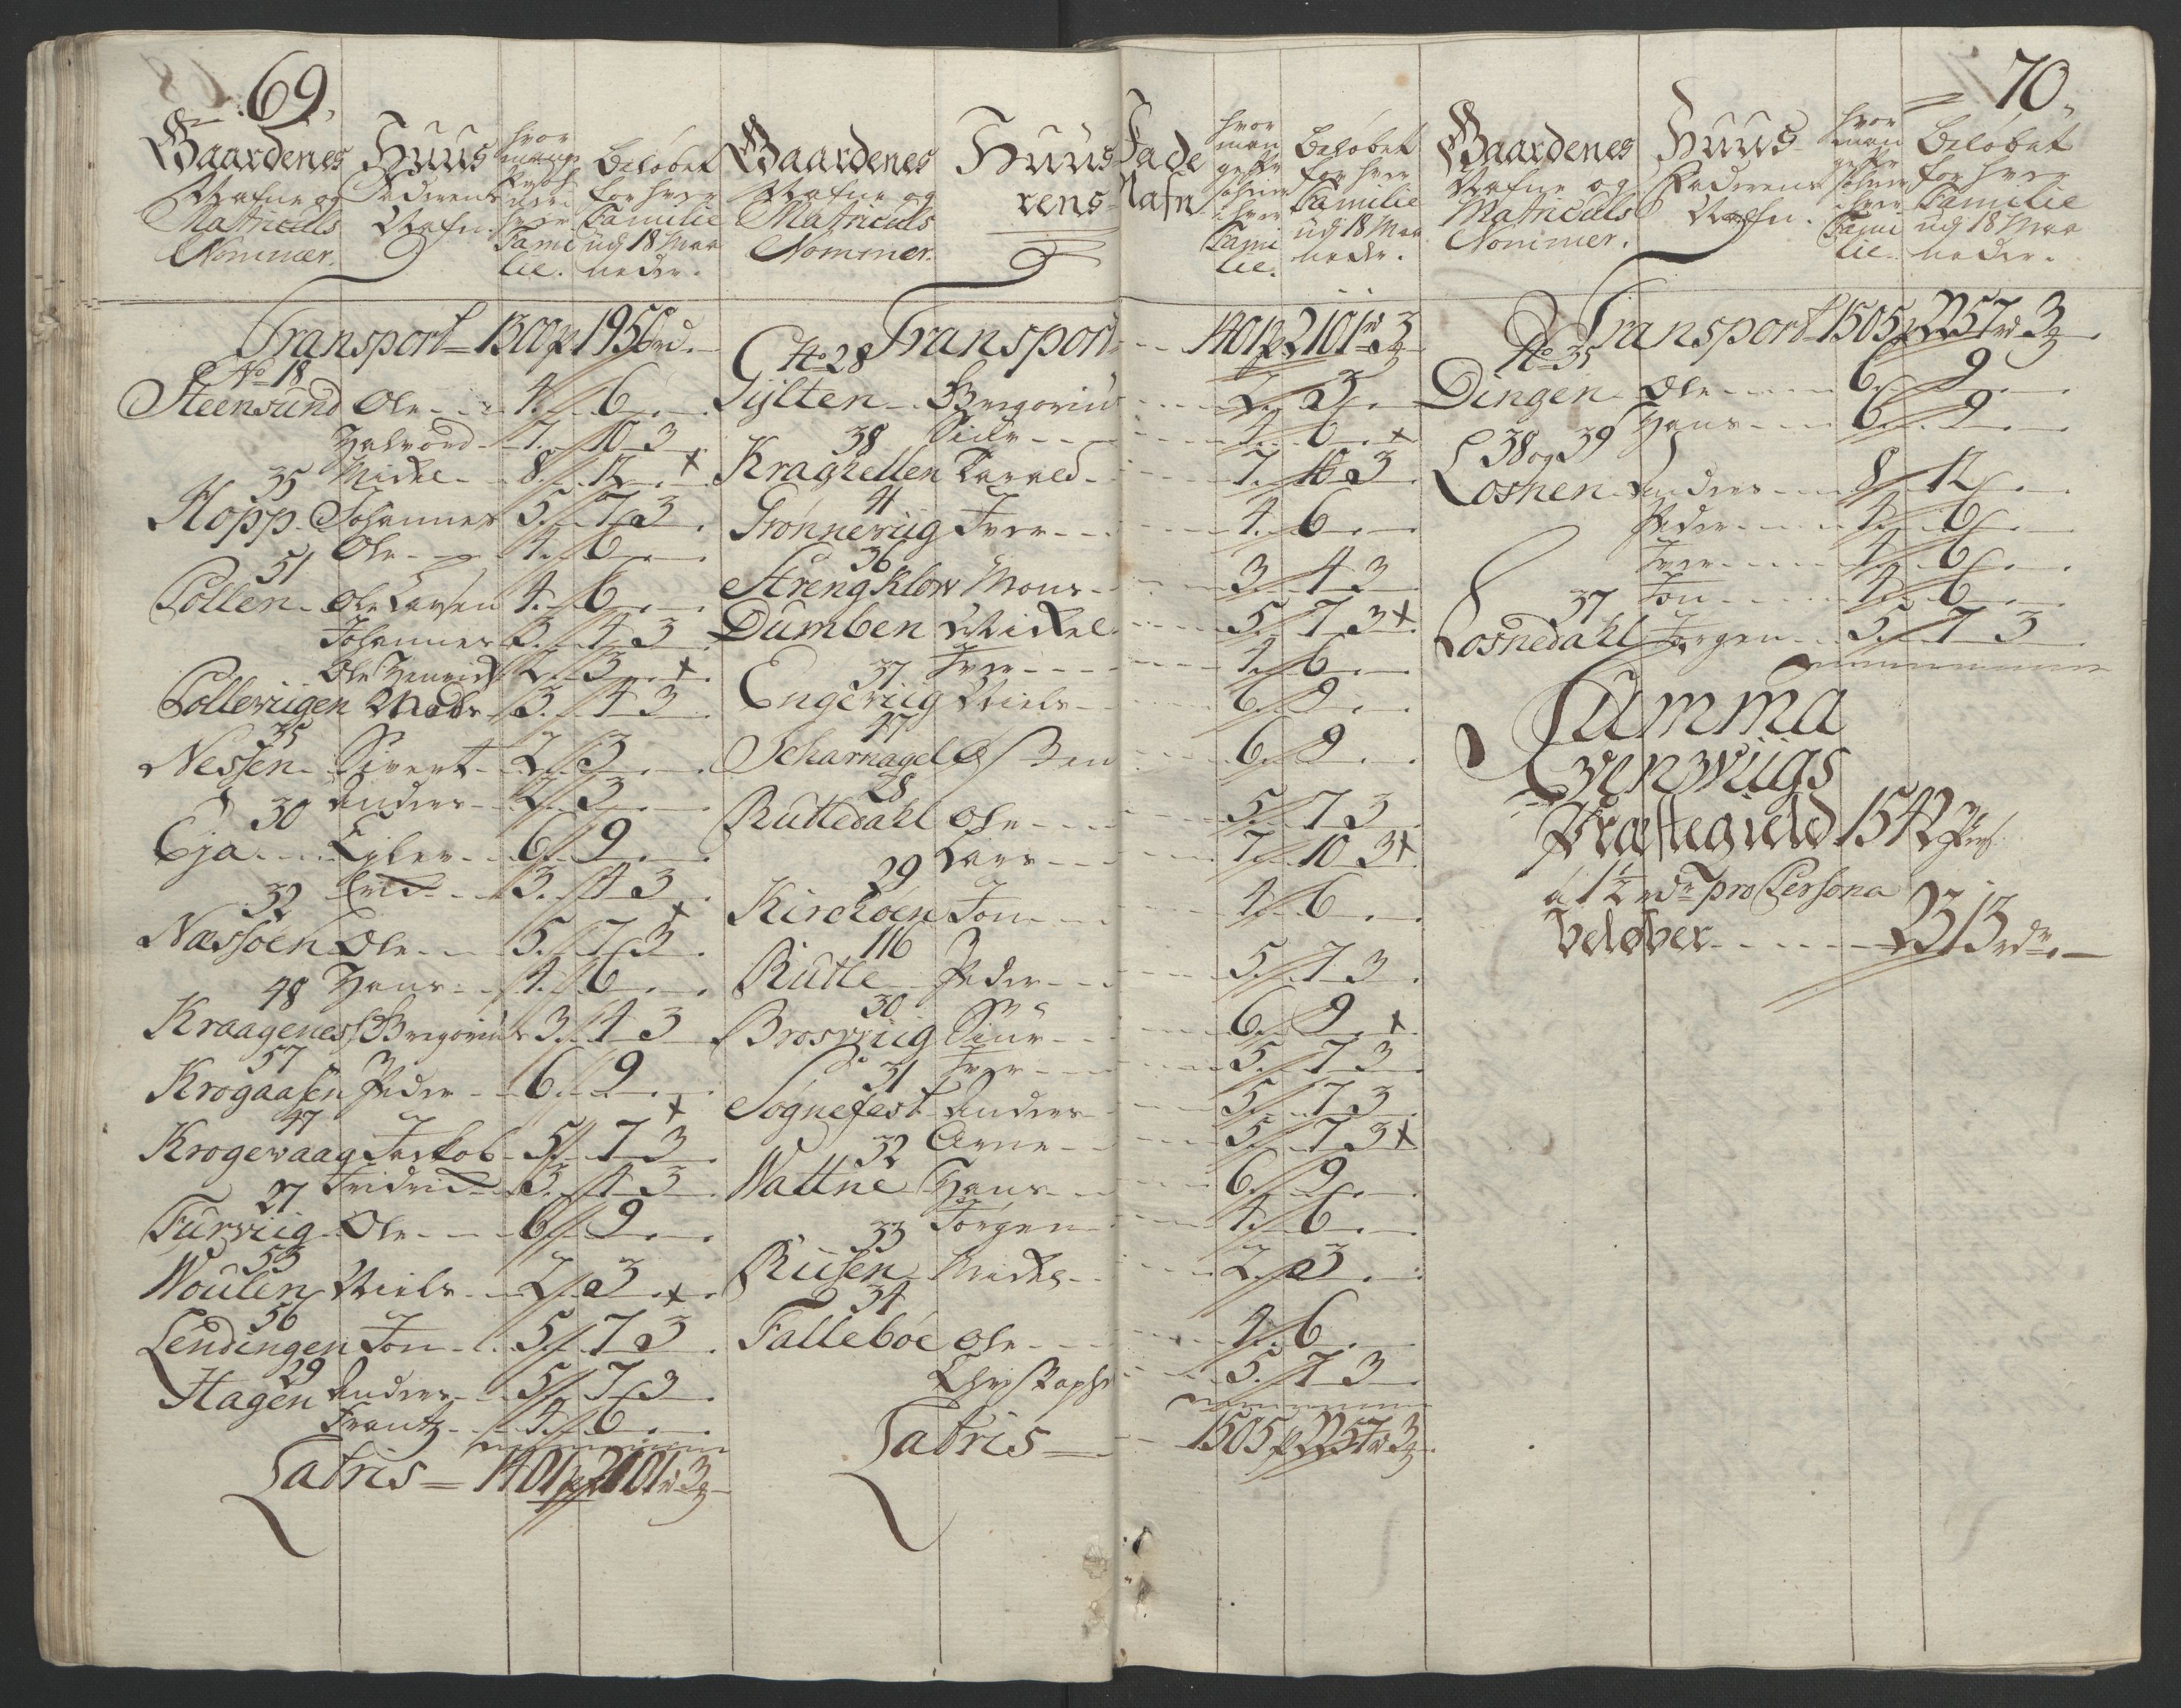 69.
Gaardenes
Nafne og
Matriculs
Nommer.
Huus
Faderens
Nafn.
hvor
mange
i hver
Fami
lie.
Beløbet
for hver
Familie
udj 18 Maa
neder.
Transport 1300 p 1950 rd.
No 18
Steensund Ole 4. 6.
Halvord 7. 10 3
Mickel 8. 12. +
35
Hopp Johannes 5. 7 3.
Ole 4. 6.
51
Pollen Ole Larsen 4. 6.
Johannes 3. 4 3
Ole Henrich 2. 3. +
Pollevigen Mads 3. 4 3
35
Nessen Sivert 2. 3.
Anders 2. 3.
30
Eja Ejler 6. 9.
Erich 3. 4 3
32
Næssøen Ole 5. 7 3 +
Hans 4. 6.
48
Kraagenes Gregorius 3. 4 3
57
Krogaasen Peder 6. 9.
47
Krogewaag Jackob 5. 7 3 +
Fridrich 3. 4 3
27
Furviig Ole 6. 9.
53
Woulen Niels 2. 3. +
56
Lendingen Jon 5. 7 3
29
Hagen Anders 5. 7 3
Frantz 4. 6.
Latris 1401 p 2101 rd 3
Gaardenes
Nafne og
Matriculs
Nommer.
Huus Fade
rens Nafn
hvor
man
i hver
Fami
lie.
Beløbet
for hver
Familie
udj 18 Maa
neder.
Transport 1401 p 2101 rd 3
No 28
Gylten Gregorius 2. 3.
4. 6. +
38
Kraghellen Harald 7. 10 3
41
Grønneviig Iver 4. 6.
36
Strengklov Mons 3 4 3
Dumben Mickel 5. 7 3 +
Iver 4. 6.
37
Engeviig Niels 6. 9.
47
Scharnagel Esben 6. 9.
28
Ruttedahl Ole 5. 7 3
Lars 7. 10 3 +
29
Kirchøen Jon 4. 6.
116
Rutle Peder 5. 7 3
30
Brosviig Siur 6. 9. +
Iver 5. 7 3
31
Sognefest Anders 5. 7 3
Arne 5. 7 3 +
32
Wattne Hans 6. 9.
Jørgen 4. 6.
33
Riisen Mickel 2. 3.
34
Falleboe Ole 4. 6.
Christopher 5. 7 3
Latris 1505 p 2257 rd 3
70.
Gaardenes
Nafne og
Matriculs
Nommer.
Huus
Faderens
Nafn.
hvor
man
i hver
Fami
lie.
Beløbet
for hver
Familie
udj 18 Maa
neder.
Transport 1505 p 2257 rd 3
No 35
Dingen Ole 6. 9
Hans 6. 9.
38 og 39
Losnen Anders 8 12.
Peder 4. 6.
Iver 4. 6.
Jon 4. 6.
37
Losnedahl Jørgen 5. 7 3
Summa
Evenwiigs
Præstegield 1542 Pers.
á 1½ rdr pro Persona
beløber 2313 rdr.